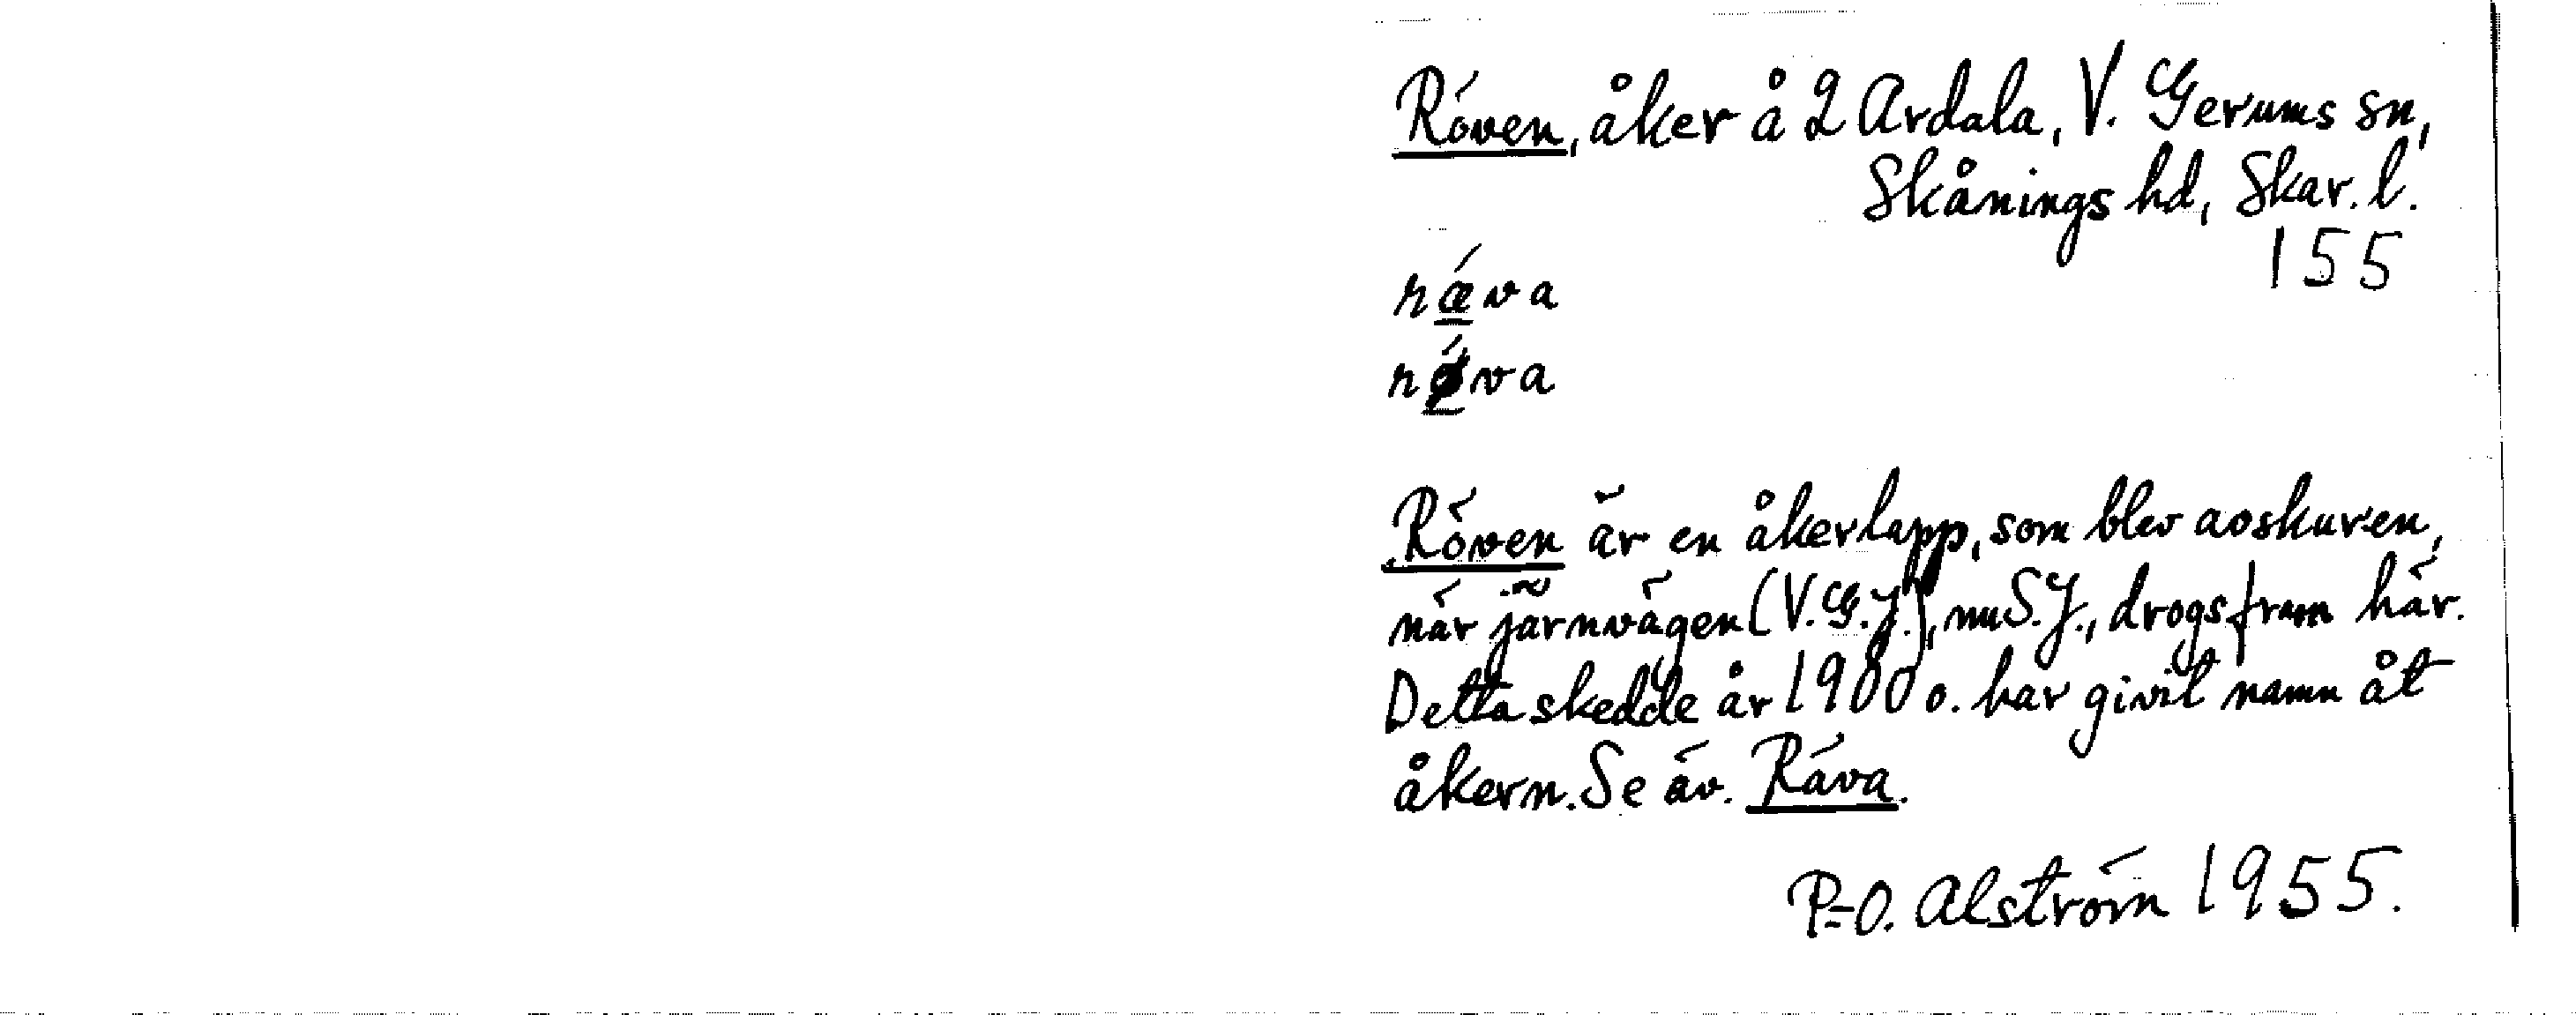 Röven, åker å 2 Ardala, V. Gerums sn,
Skånings hd, Skar. l.
155
rǽva
rǿva
Röven är en åkerlapp, som blev avskuren,
när järnvägen (V.G.J.), nu S.J., drogs fram här.
Detta skedde år 1900 o. har givit namn åt
åkern. Se äv. Räva.
P-O. Alström 1955.